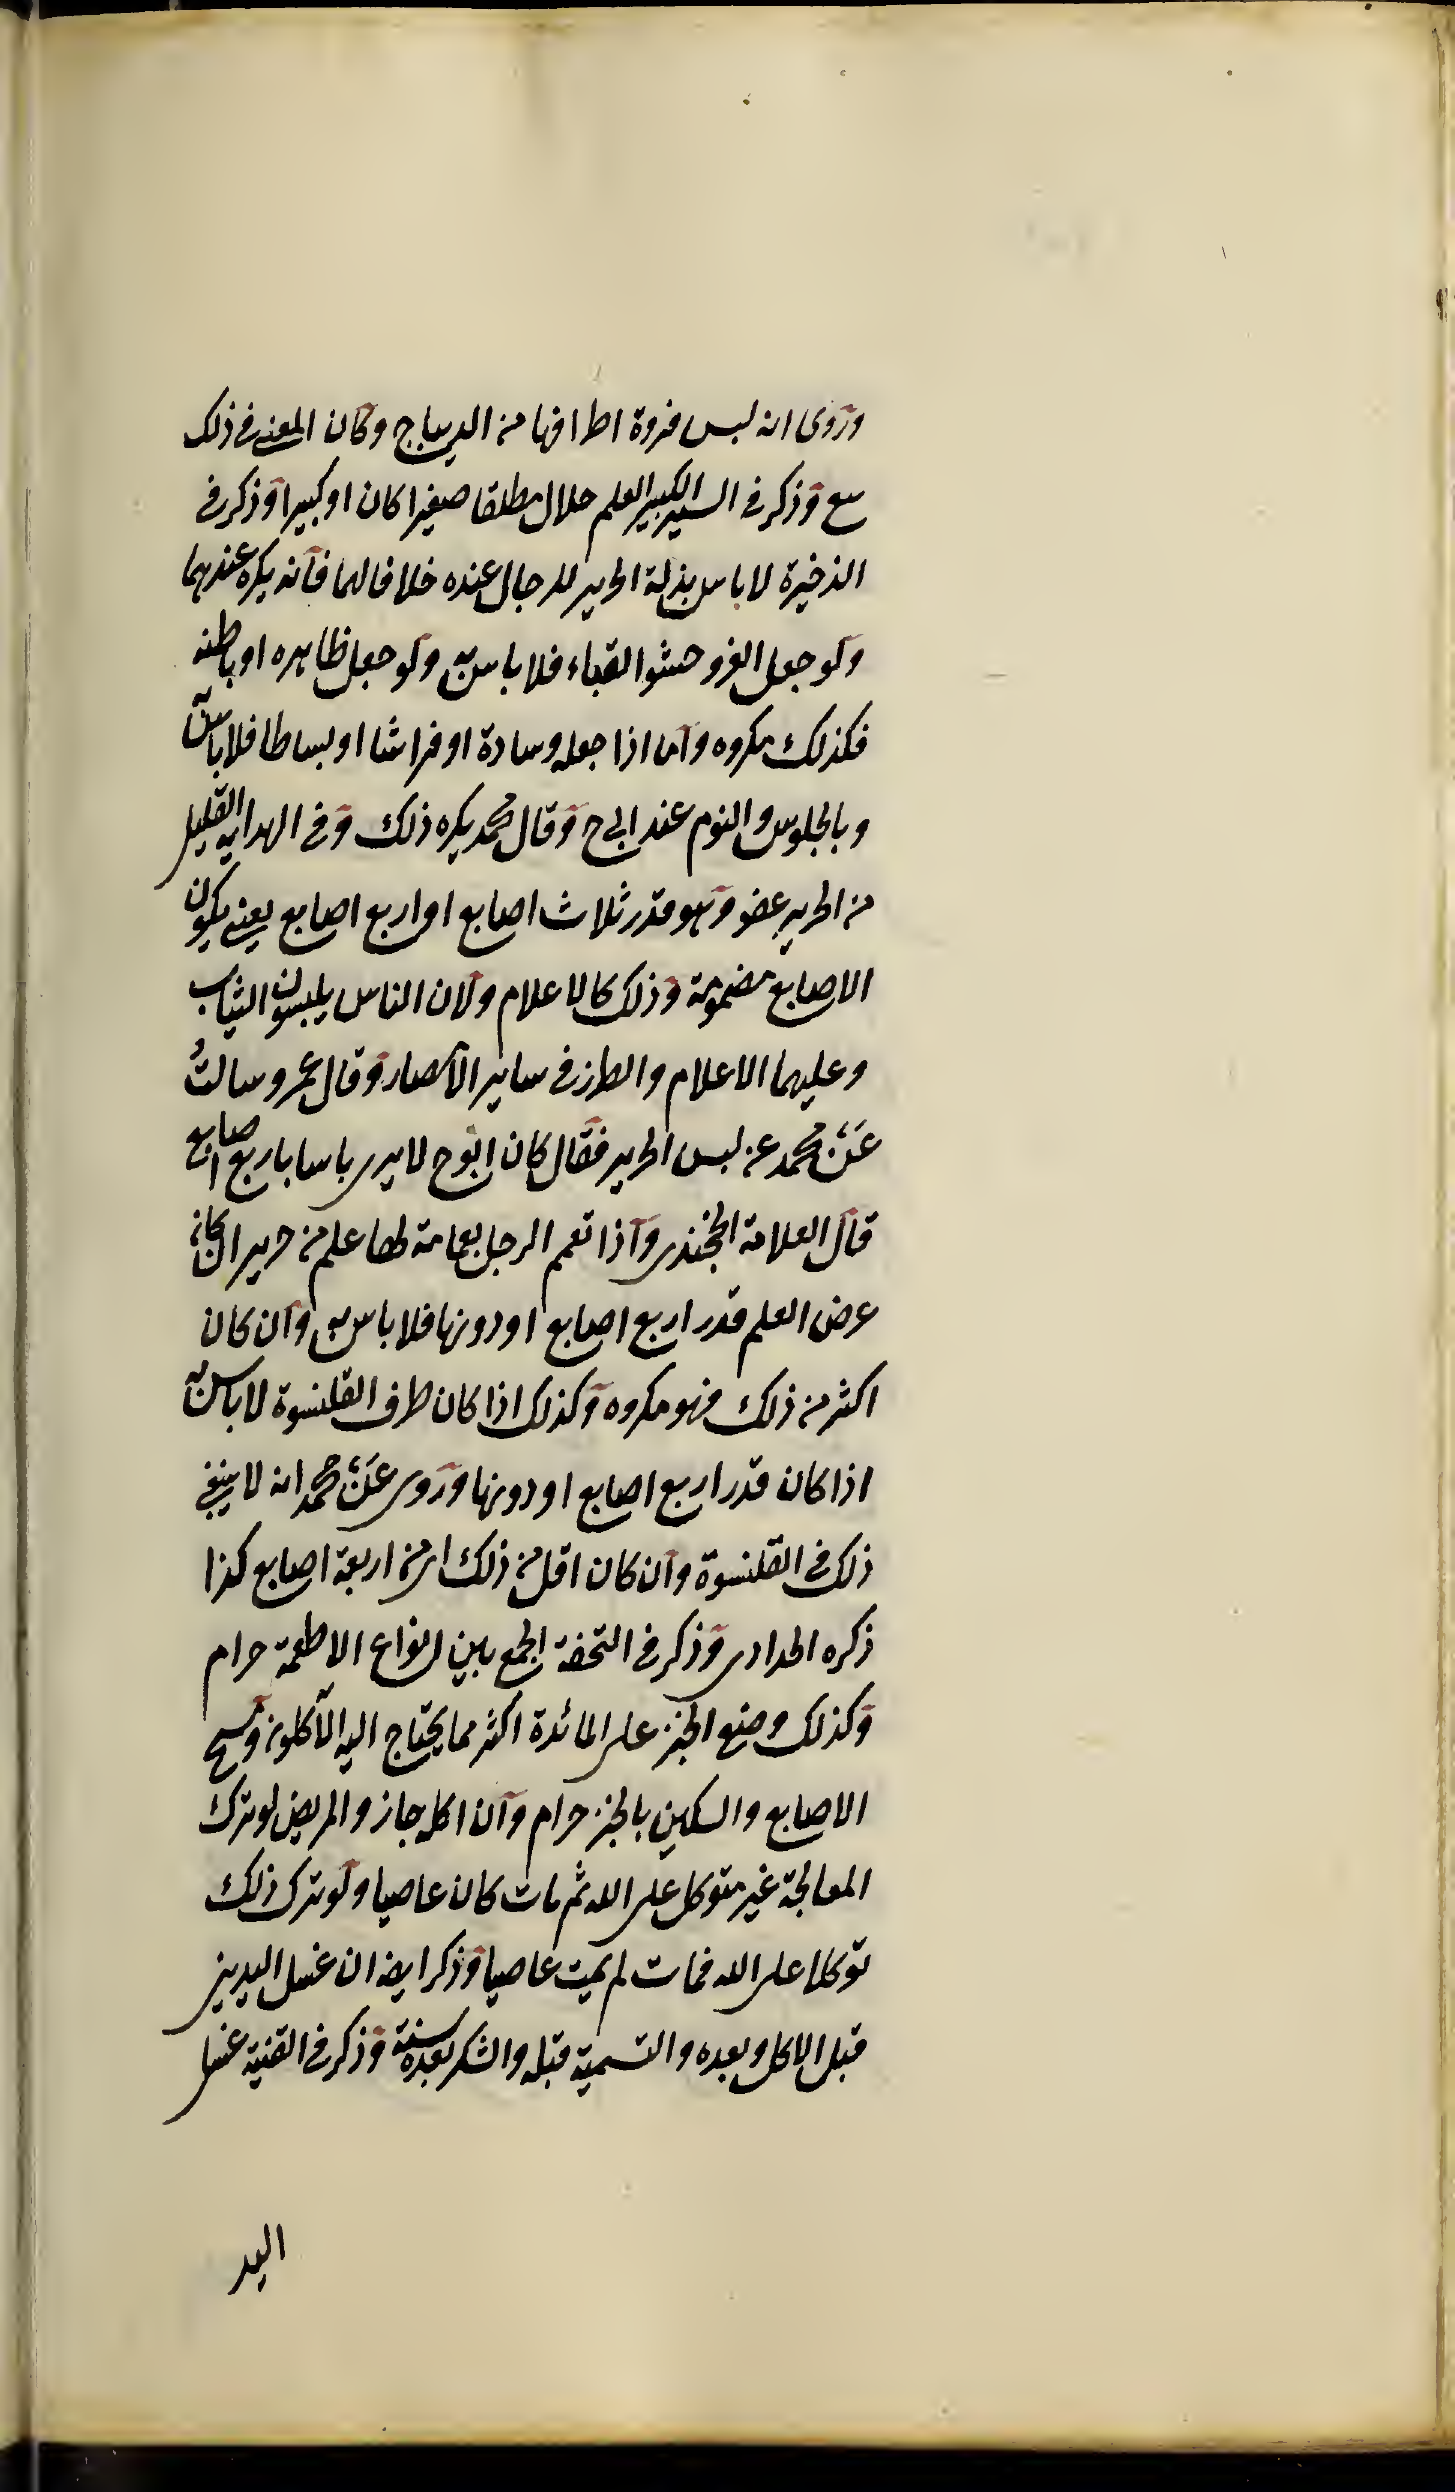 وروى انه لبس فروة اطرافها من الديباج وكان المعنى فى ذلك
وذكر فى السير الكبير العلم حلال مطلقا صغيرا كان او كبيرا وذكر فى
الذخيرة لا باس الحرير للرجال عنده خلافا لهما فانه يكره عندهما
ولو جعل القز وحشوا القباء فلا باس به ولو جعل ظاهره او باطنه
فكذلك مكروه واما اذا جعله وسادة او فراشا او بساطا فلا باس به
وبالجلوس والنوم عند ابى ح وقال محمد يكره ذلك وفى الهداية القليل
من الحرير عفو وهو قدر ثلاث اصابع او اربع اصابع يعنى يكون
الاصابع مضمومة وذلك كالاعلام ولان الناس يلبسون الثياب
وعليهما الاعلام والطرز فى ساير الامصار وقال عمرو سالتُ
عن محمد عن لبس الحرير فقال كان ابوح لا يرى باسا باربع اصابع
قال العلامة الخجندى واذا تعمم الرجل بعمامة لها علم من حرير ان كانه
عرض العلم قدر اربع اصابع او دونها فلا باس به وان كان
اكثر من ذلك فهو مكروه وكذلك اذا كان طرف القلنسوة لا باس به
اذا كان قدر اربع اصابع او دونها وروى عن محمد انه لا ينبغى
ذلك فى القلنسوة وان كان اقل من ذلك اى من اربعة اصابع كذا
ذكره الحدادى وذكر فى التحفة الجمع بين انواع الاطعمة حرام
وكذلك وضع الخبز على المائدة اكثر مما يحتاج اليه الآكلون ومسح
الاصابع والسكين بالخبز حرام وان اكله جاز والمريض لو ترك
المعالجة غير متوكل على الله ثم مات كان عاصيا ولو ترك ذلك
توكلا على الله فمات لم يمت عاصيا وذكر ايضا ان غسل اليدين
قبل الاكل وبعده والتسمية قبله والشكر بعده سنة وذكر فى القنية غسل
اليد